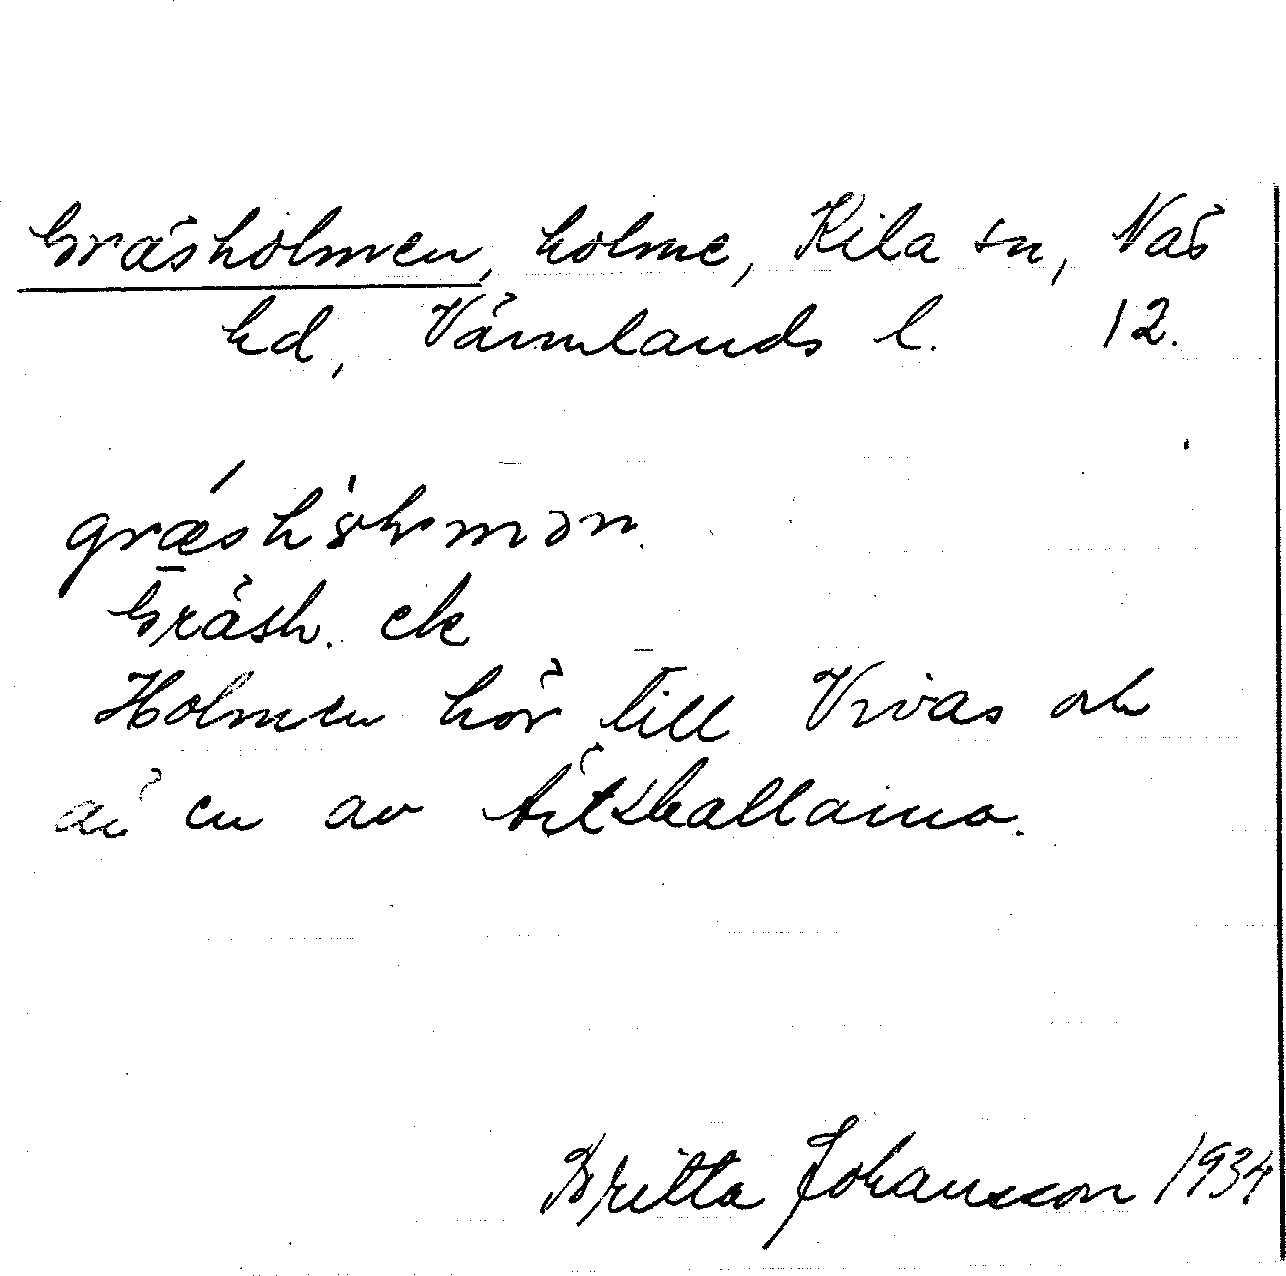 Gräsholmen, holme, Kila sn, Näs
hd, Värmlands l. 12.
Gräsh. ek
Holmen hör till Vivas och
är en av Ärtskallarna.
Britta Johansson 1934